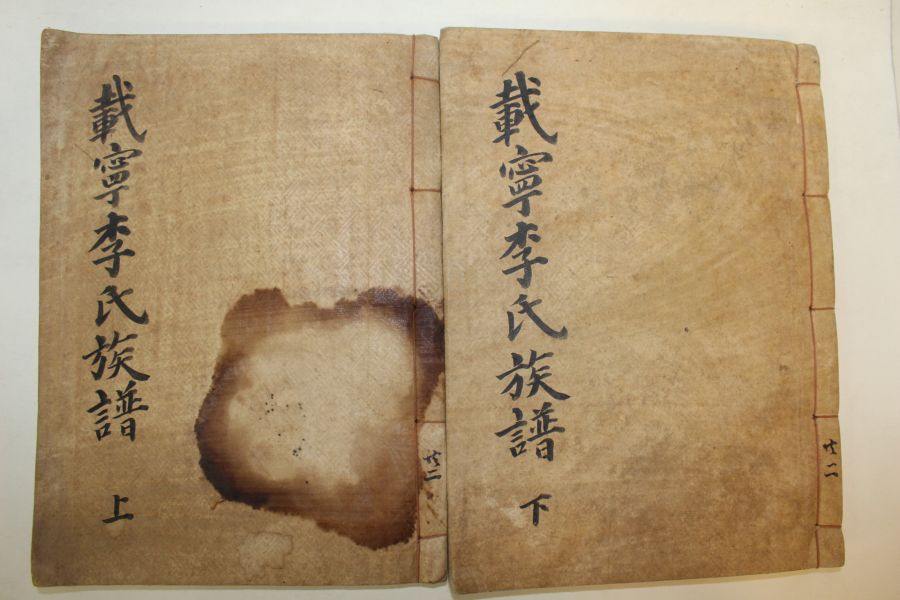 載寧李氏族譜 上
共二
載寧李氏族譜 下
共二